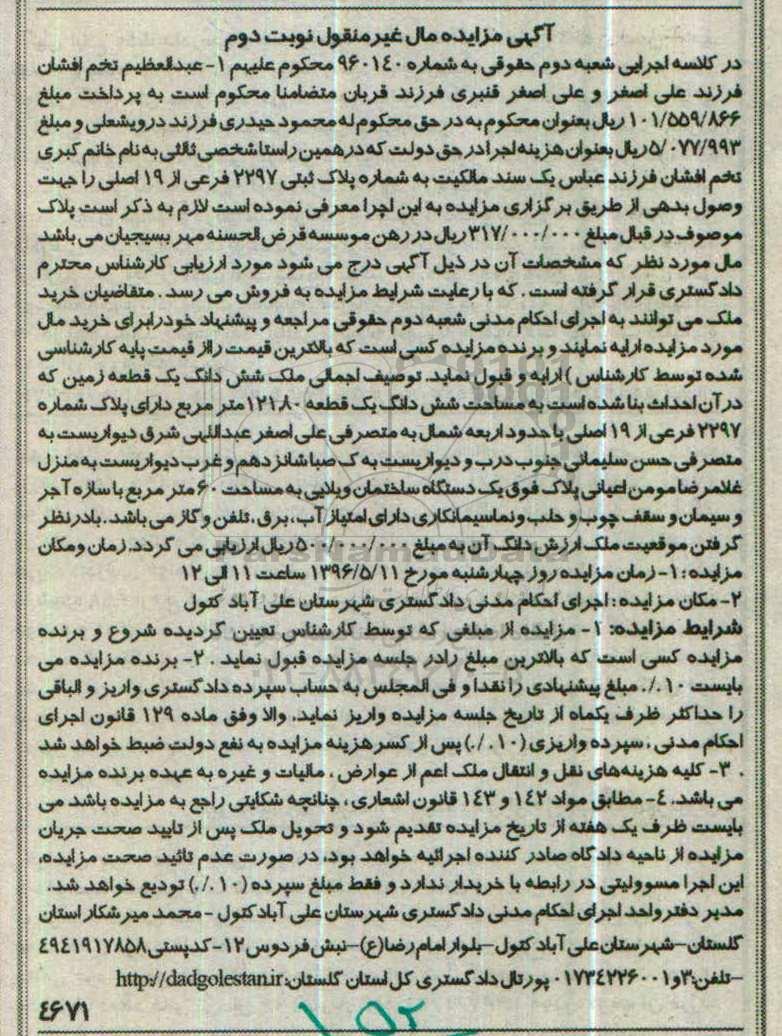 آگهی مزایده مال غیرمنقول نوبت دوم
در کلاسه اجرایی شعبه دوم حقوقی به شماره ۹۶۰۱۴۰ محکوم علیهم ۱- عبدالعظیم تخم افشان
فرزند علی اصغر و علی اصغر قنبری فرزند قربان متضامنا محکوم است به پرداخت مبلغ
۱۰۱/۵۵۹/۸۶۶ ریال بعنوان محکوم به در حق محکوم له محمود حیدری فرزند درویشعلی و مبلغ
۵/۰۷۷/۹۹۳ ریال بعنوان هزینه اجرا در حق دولت که در همین راستا شخصی ثالثی به نام خانم کبری
تخم افشان فرزند عباس یک سند مالکیت به شماره پلاک ثبتی ۲۲۹۷ فرعی از ۱۹ اصلی را جهت
وصول بدهی از طریق برگزاری مزایده به این اجرا معرفی نموده است لازم به ذکر است پلاک
موصوف در قبال مبلغ ۳۱۷/۰۰۰/۰۰۰ ریال در رهن موسسه قرض الحسنه مهر بسیجیان می باشد
مال مورد نظر که مشخصات آن در ذیل آگهی درج می شود مورد ارزیابی کارشناس محترم
دادگستری قرار گرفته است . که با رعایت شرایط مزایده به فروش می رسد . متقاضیان خرید
ملک می توانند به اجرای احکام مدنی شعبه دوم حقوقی مراجعه و پیشنهاد خود رابرای خرید مال
مورد مزایده ارایه نمایند و برنده مزایده کسی است که بالاترین قیمت رااز قیمت پایه کارشناسی
شده توسط کارشناس ) ارایه و قبول نماید. توصیف اجمالی ملک شش دانگ یک قطعه زمین که
در آن احداث بنا شده است به مساحت شش دانگ یک قطعه ۱۲۱،۸۰ متر مربع دارای پلاک شماره
۲۲۹۷ فرعی از ۱۹ اصلی با حدود اربعه شمال به متصرفی علی اصغر عبداللهی شرق دیواریست به
متصرفی حسن سلیمانی جنوب درب و دیواریست به ک صبا شانزدهم و غرب دیواریست به منزل
غلامرضا مومن اعیانی پلاک فوق یک دستگاه ساختمان ویلایی به مساحت ۶۰ متر مربع با سازه آجر
و سیمان و سقف چوب و حلب ونماسیمانکاری دارای امتیاز آب، برق، تلفن و گاز می باشد . بادر نظر
گرفتن موقعیت ملک ارزش دانگ آن به مبلغ ۵۰۰/۰۰۰/۰۰۰ ریال ارزیابی می گردد. زمان ومکان
مزایده : ۱- زمان مزایده روز چهارشنبه مورخ ۱۳۹۶/۵/۱۱ ساعت ۱۱ الی ۱۲
۲- مکان مزایده : اجرای احکام مدنی دادگستری شهرستان علی آباد کتول
شرایط مزایده: ۱- مزایده از مبلغی که توسط کارشناس تعیین گردیده شروع و برنده
مزایده کسی است که بالاترین مبلغ رادر جلسه مزایده قبول نماید . ۲- برنده مزایده می
بایست ۱۰ ./. مبلغ پیشنهادی را نقدا و فی المجلس به حساب سپرده دادگستری واریز و الباقی
را حداکثر ظرف یکماه از تاریخ جلسه مزایده واریز نماید. والا وفق ماده ۱۲۹ قانون اجرای
احکام مدنی ، سپرده واریزی (۱۰ ./.) پس از کسر هزینه مزایده به نفع دولت ضبط خواهد شد
. ۳- کلیه هزینه های نقل و انتقال ملک اعم از عوارض ، مالیات و غیره به عهده برنده مزایده
می باشد. ۴- مطابق مواد ۱۴۲ و ۱۴۳ قانون اشعاری ، چنانچه شکایتی راجع به مزایده باشد می
بایست ظرف یک هفته از تاریخ مزایده تقدیم شود و تحویل ملک پس از تایید صحت جریان
مزایده از ناحیه دادگاه صادر کننده اجرائیه خواهد بود، در صورت عدم تائید صحت مزایده،
این اجرا مسوولیتی در رابطه با خریدار ندارد و فقط مبلغ سپرده (۱۰ ./.) تودیع خواهد شد.
مدیر دفتر واحد اجرای احکام مدنی دادگستری شهرستان علی آبادکتول - محمد میرشکار استان
گلستان–شهرستان علی آباد کتول –بلوار امام رضا(ع)–نبش فردوس ۱۲- کدپستی ۴۹۴۱۹۱۷۸۵۸
–تلفن:۳و۰۱۷۳۴۲۲۶۰۰۱ پورتال دادگستری کل استان گلستان: http://dadgolestan.ir
۴۶۷۱
۱۵۲